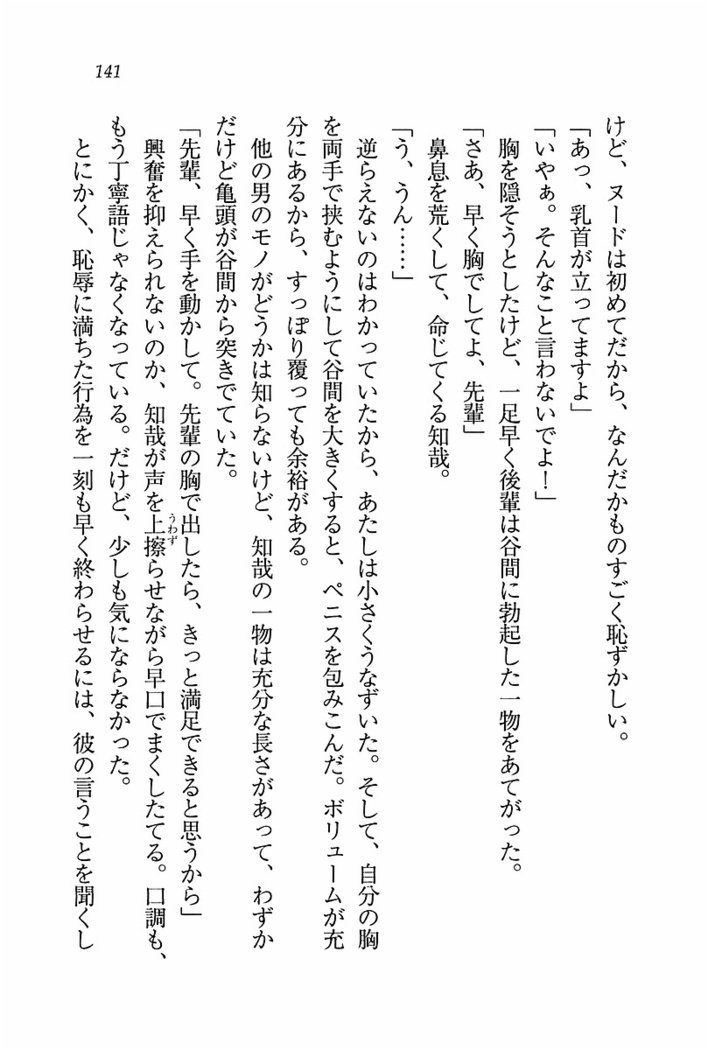 141
けど、ヌードは初めてだから、なんだかものすごく恥ずかしい。
「あっ、乳首が立ってますよ」
「いやぁ。そんなこと言わないでよ！」
胸を隠そうとしたけど、一足早く後輩は谷間に勃起した一物をあてがった。
「さあ、早く胸でしてよ、先輩」
鼻息を荒くして、命じてくる知哉。
「う、うん……」
逆らえないのはわかっていたから、あたしは小さくうなずいた。そして、自分の胸
を両手で挟むようにして谷間を大きくすると、ペニスを包みこんだ。ボリュームが充
分にあるから、すっぽり覆っても余裕がある。
他の男のモノがどうかは知らないけど、知哉の一物は充分な長さがあって、わずか
だけど亀頭が谷間から突きでていた。
「先輩、早く手を動かして。先輩の胸で出したら、きっと満足できると思うから」
興奮を抑えられないのか、知哉が声を上擦らせながら早口でまくしたてる。口調も、
もう丁寧語じゃなくなっている。だけど、少しも気にならなかった。
とにかく、恥辱に満ちた行為を一刻も早く終わらせるには、彼の言うことを聞くし